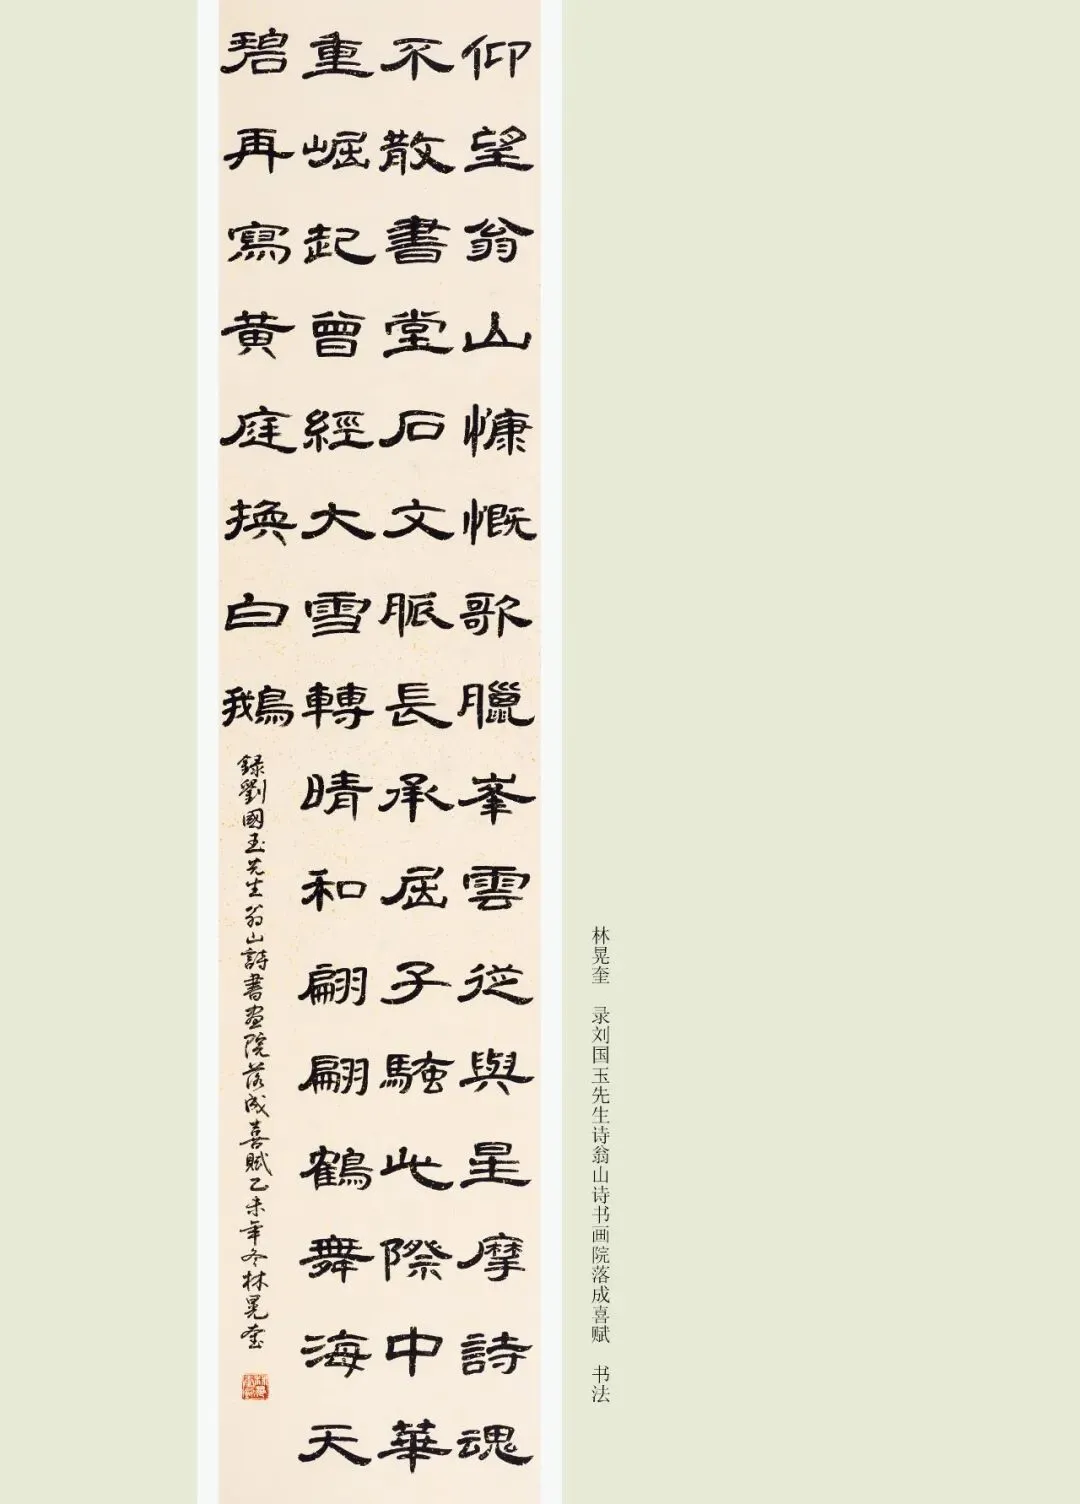 仰望翁山慷慨歌臘峯雲從與星摩詩魂
不散書堂石文脈長承屈子騷此際中華
重崛起曾經大雪轉晴和翩翩鶴舞海天
碧再寫黃庭換白鵝
録劉國玉先生翁山詩書畫院落成喜賦乙未年冬林晃奎
林晃奎 录刘国玉先生诗翁山诗书画院落成喜赋 书法